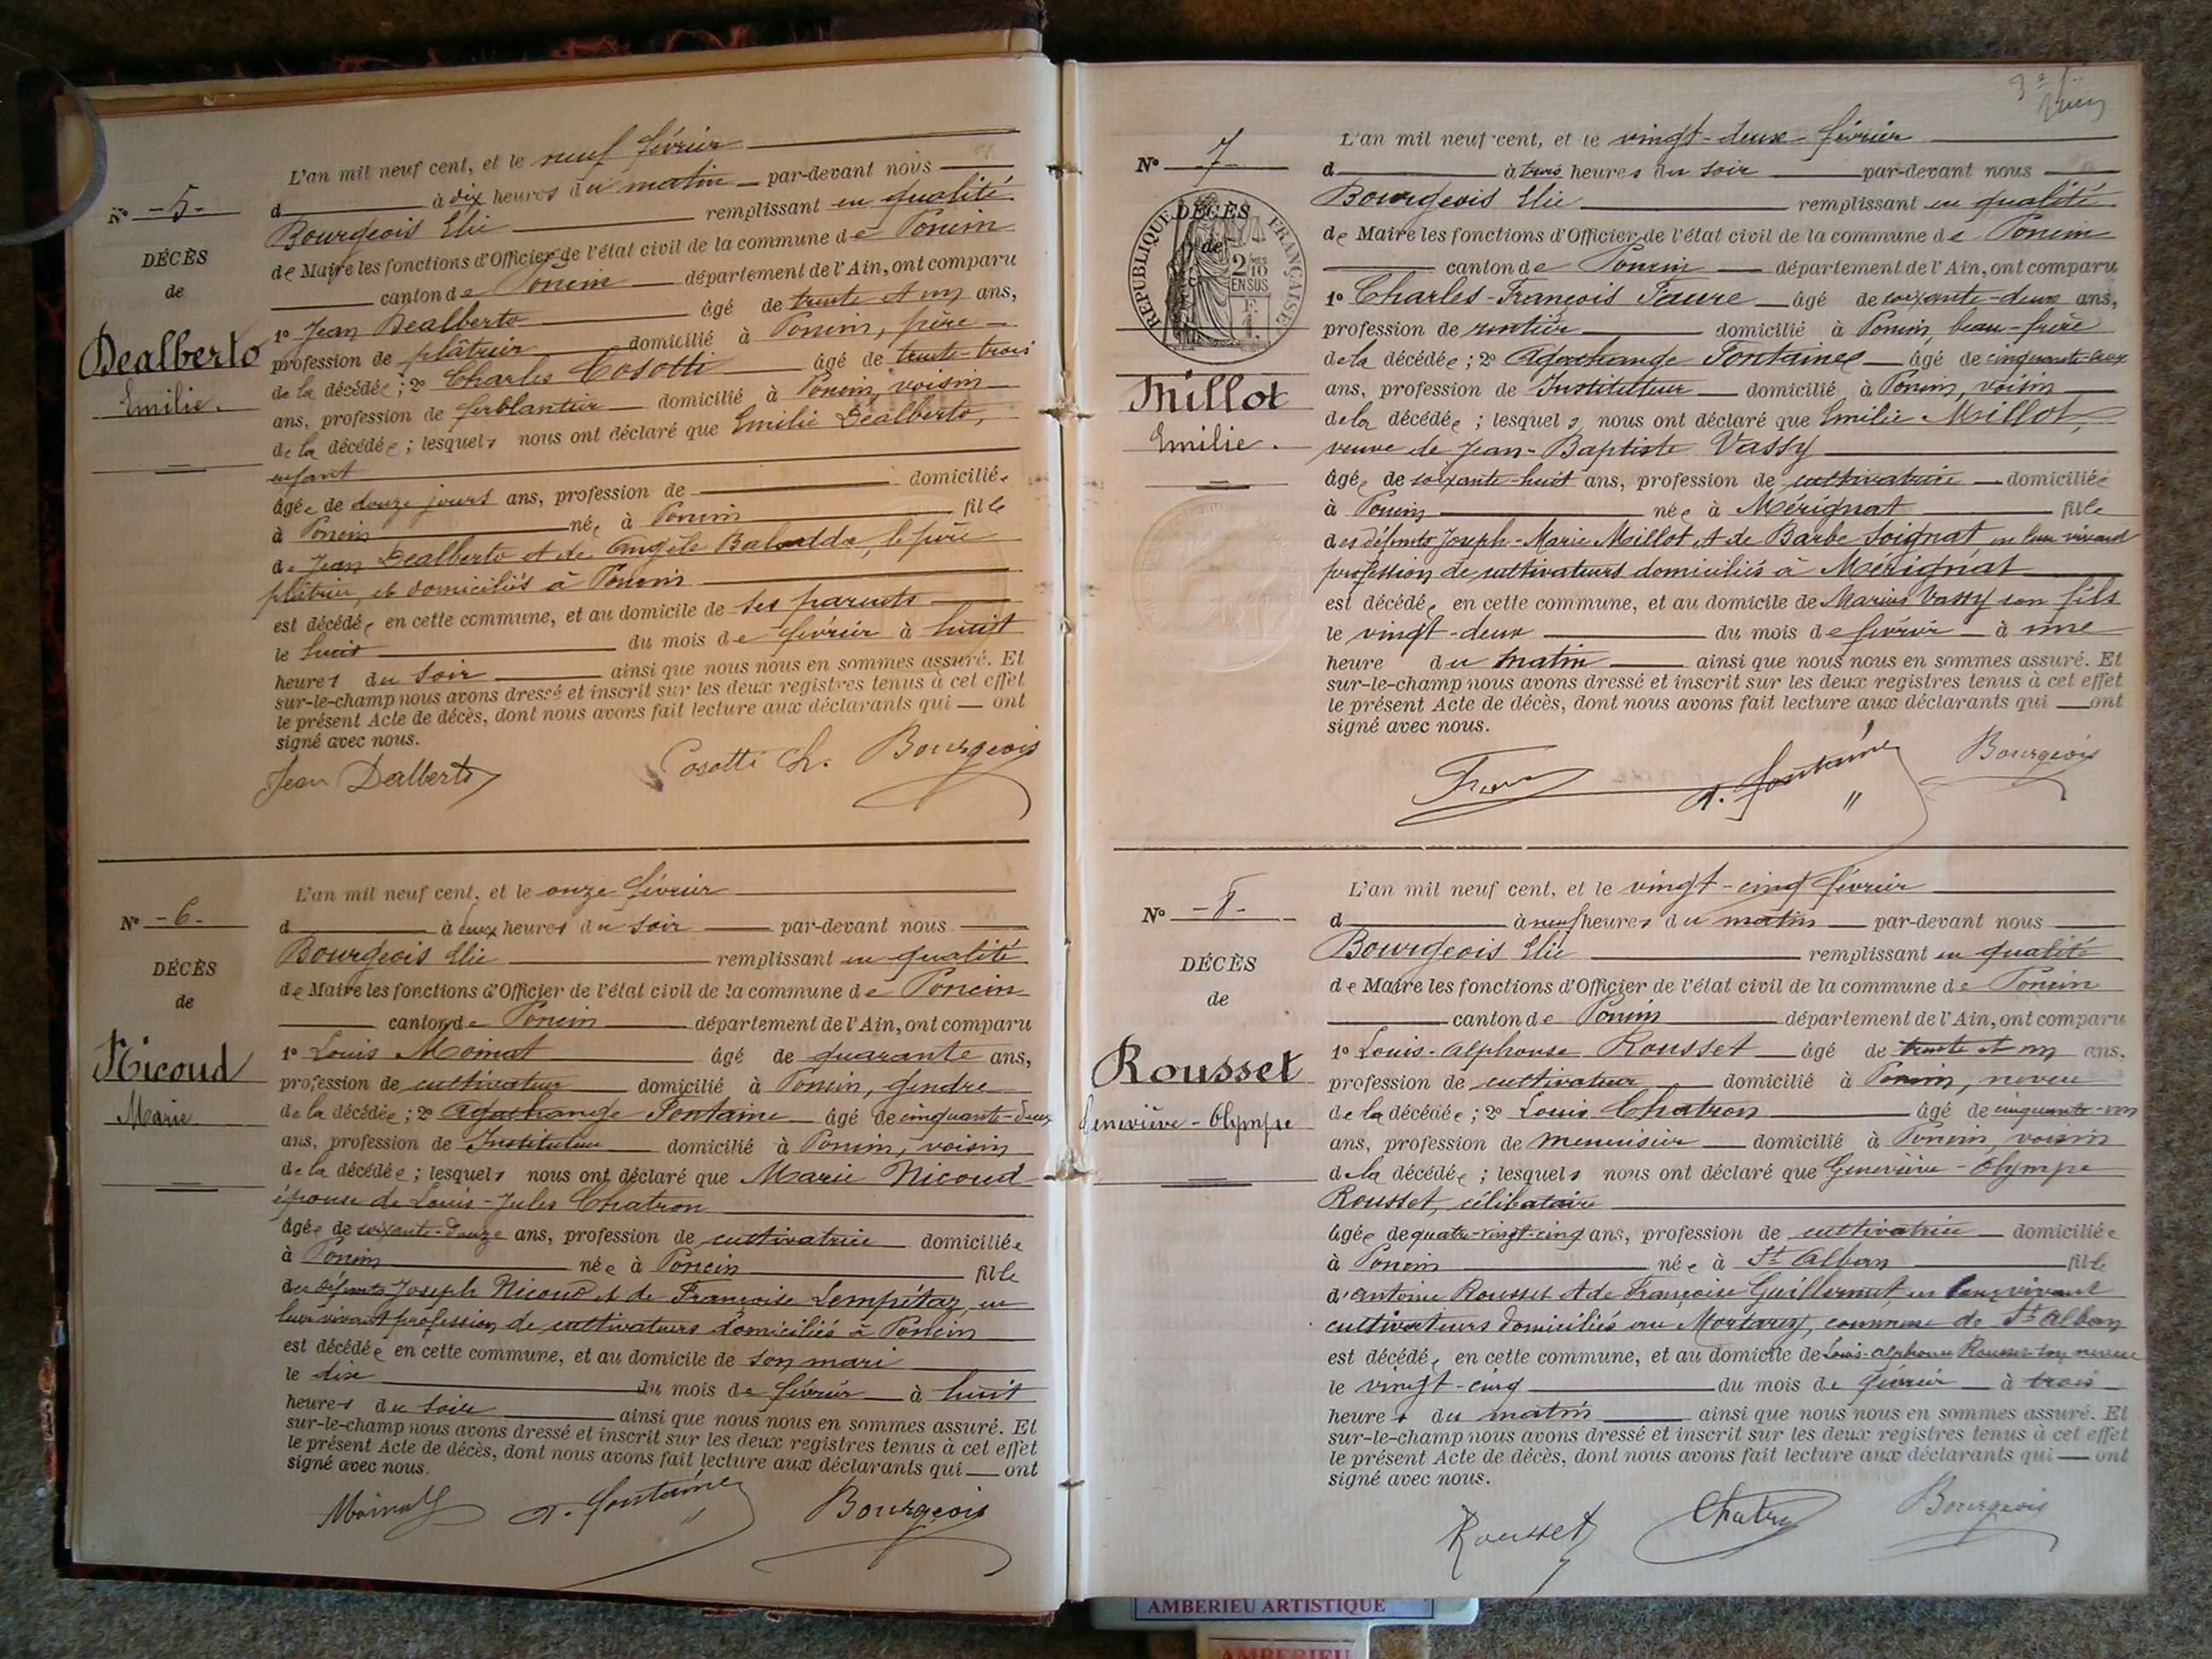 L'an mil neuf cent, et le neuf février
N° -5-
d à dix heures du matin par-devant nous
Bourgeois Elie remplissant en qualité
DÉCÈS
de Maire les fonctions d'Officier de l'état civil de la commune de Poncin
de
canton de Poncin département de l'Ain, ont comparu
Dealberto
Emilie.
1° Jean Dealberto âgé de trente et un ans,
profession de plâtrier domicilié à Poncin, père
de la décédée; 2° Charles Cosotti âgé de trente-trois
ans, profession de ferblantier domicilié à Poncin, voisin
de la décédée; lesquels nous ont déclaré que Emilie Dealberto,
enfant
âgée de douze jours ans, profession de domiciliée
à Poncin née à Poncin fille
de Jean Dealberto et de Angèle, le père
plâtrier, et domiciliés à Poncin
est décédée en cette commune, et au domicile de ses parents
le huit du mois de février à huit
heures du soir ainsi que nous nous en sommes assuré. Et
sur-le-champ nous avons dressé et inscrit sur les deux registres tenus à cet effet
le présent Acte de décès, dont nous avons fait lecture aux déclarants qui ont
signé avec nous.
Jean Dealberto Cosotti Ch. Bourgeois
L'an mil neuf cent, et le onze février
N° -6-
d à deux heures du soir par-devant nous
Bourgeois Elie remplissant en qualité
DÉCÈS
de Maire les fonctions d'Officier de l'état civil de la commune de Poncin
de
canton de Poncin département de l'Ain, ont comparu
Nicoud
Marie
1° Louis Moinat âgé de quarante ans,
profession de cultivateur domicilié à Poncin, gendre
de la décédée; 2° Agathange Fontaine âgé de cinquante-deux
ans, profession de Instituteur domicilié à Poncin, voisin
de la décédée; lesquels nous ont déclaré que Marie Nicoud
épouse de Louis-Jules Chatron
âgée de soixante-douze ans, profession de cultivatrice domiciliée
à Poncin née à Poncin fille
des défunts Joseph Nicoud et de Françoise Lempétaz, en
leur vivant profession de cultivateurs domiciliés à Poncin
est décédée en cette commune, et au domicile de son mari
le dix du mois de février à huit
heures du soir ainsi que nous nous en sommes assuré. Et
sur-le-champ nous avons dressé et inscrit sur les deux registres tenus à cet effet
le présent Acte de décès, dont nous avons fait lecture aux déclarants qui ont
signé avec nous.
Moinat A. Fontaine Bourgeois
L'an mil neuf cent, et le vingt-deux février
N° 7
d à trois heures du soir par-devant nous
Bourgeois Elie remplissant en qualité
RÉPUBLIQUE FRANÇAISE
DÉCÈS
de
2/10
EN SUS
de Maire les fonctions d'Officier de l'état civil de la commune de Poncin
canton de Poncin département de l'Ain, ont comparu
Millot
Emilie.
1° Charles-François Faure âgé de soixante-deux ans,
profession de rentier domicilié à Poncin, beau-frère
de la décédée; 2° Agathange Fontaine âgé de cinquante-deux
ans, profession de Instituteur domicilié à Poncin, voisin
de la décédée; lesquels nous ont déclaré que Emilie Millot,
veuve de Jean-Baptiste Vassy
âgée de soixante-huit ans, profession de cultivatrice domiciliée
à Poncin née à Mérignat fille
des défunts Joseph-Marie Millot et de Barbe Soignat, en leur vivant
profession de cultivateurs domiciliés à Mérignat
est décédée en cette commune, et au domicile de Marius Vassy son fils
le vingt-deux du mois de février à une
heure du matin ainsi que nous nous en sommes assuré. Et
sur-le-champ nous avons dressé et inscrit sur les deux registres tenus à cet effet
le présent Acte de décès, dont nous avons fait lecture aux déclarants qui ont
signé avec nous.
A. Fontaine Bourgeois
L'an mil neuf cent, et le vingt-cinq février
N° -8-
d à neuf heures du matin par-devant nous
Bourgeois Elie remplissant en qualité
DÉCÈS
de Maire les fonctions d'Officier de l'état civil de la commune de Poncin
de
canton de Poncin département de l'Ain, ont comparu
Rousset
Geneviève-Olympe
1° Louis-Alphonse Rousset âgé de trente et un ans,
profession de cultivateur domicilié à Poncin, neveu
de la décédée; 2° Louis Chatron âgé de cinquante-un
ans, profession de menuisier domicilié à Poncin, voisin
de la décédée; lesquels nous ont déclaré que Geneviève-Olympe
Rousset, célibataire
âgée de quatre-vingt-cinq ans, profession de cultivatrice domiciliée
à Poncin née à St Alban fille
d'Antoine Rousset et de Françoise Guillermet, en leur vivant
cultivateurs domiciliés au Mortarey, commune de St Alban
est décédée en cette commune, et au domicile de Louis-Alphonse Rousset son neveu
le vingt-cinq du mois de février à trois
heures du matin ainsi que nous nous en sommes assuré. Et
sur-le-champ nous avons dressé et inscrit sur les deux registres tenus à cet effet
le présent Acte de décès, dont nous avons fait lecture aux déclarants qui ont
signé avec nous.
Rousset Chatron Bourgeois
AMBERIEU ARTISTIQUE
AMBERIEU